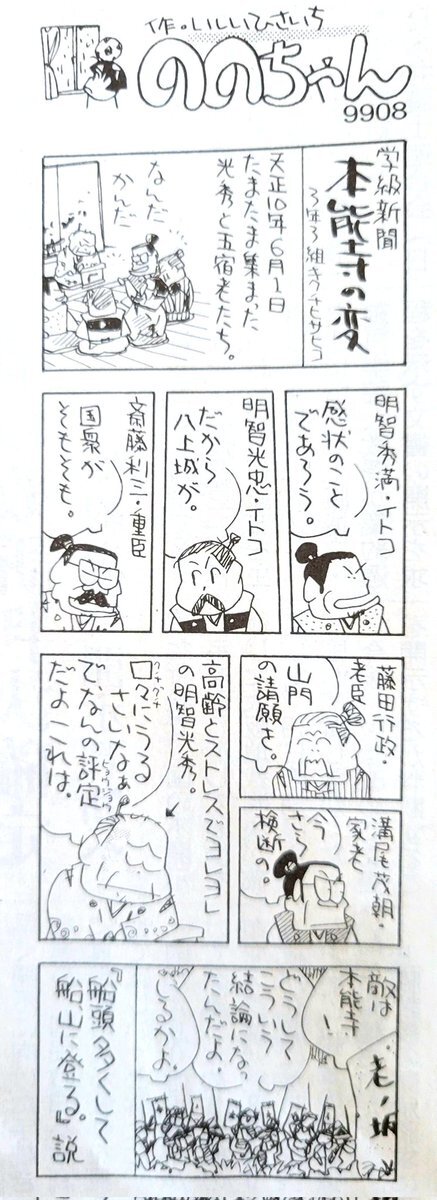 作・いしいひさいち
ののちゃん
9908
学級新聞
本能寺の変
3年3組キクチヒサヒコ
天正10年6月1日
たまたま集まった
光秀と五宿老たち。
なんだ
かんだ
明智秀満・イトコ
感状のこと
であろう。
明智光忠・イトコ
だから
八上城が。
斎藤利三・重臣
国衆が
そもそも。
藤田行政・
老臣
山門
の請願を。
溝尾茂朝・
家老
今
さら
検断の。
高齢とストレスでヨレヨレ
の明智光秀。
口々にうる
クチグチ
さいなぁ
で、なんの評定
ヒョウジョウ
だよこれは。
敵は
本能寺
!
老ノ坂
どうして
こういう
結論になっ
たんだよ。
しるかよ。
『船頭多くして
船山に登る。』説